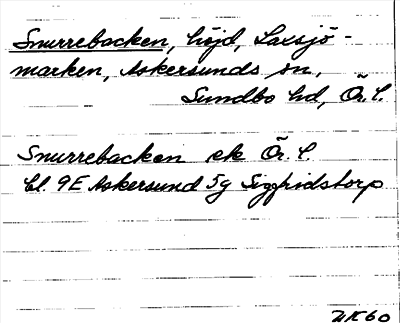 Snurrebacken, höjd, Laxsjö-
marken, Askersunds sn,
Sundbo hd, Ör. l.
Snurrebacken ek Ör. l.
Bl. 9E Askersund 5g Siggfridstorp
UK60